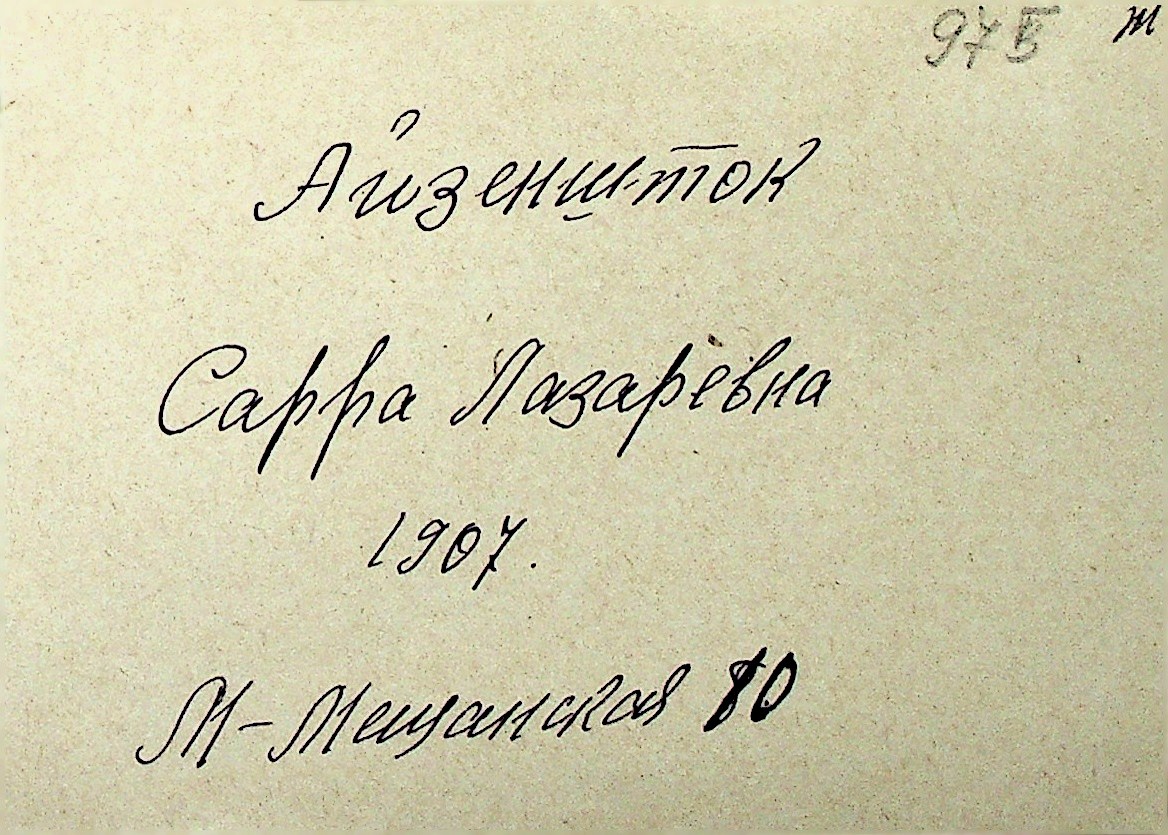 ж
Айзеншток
Сарра Лазаревна
1907.
М-Мещанская